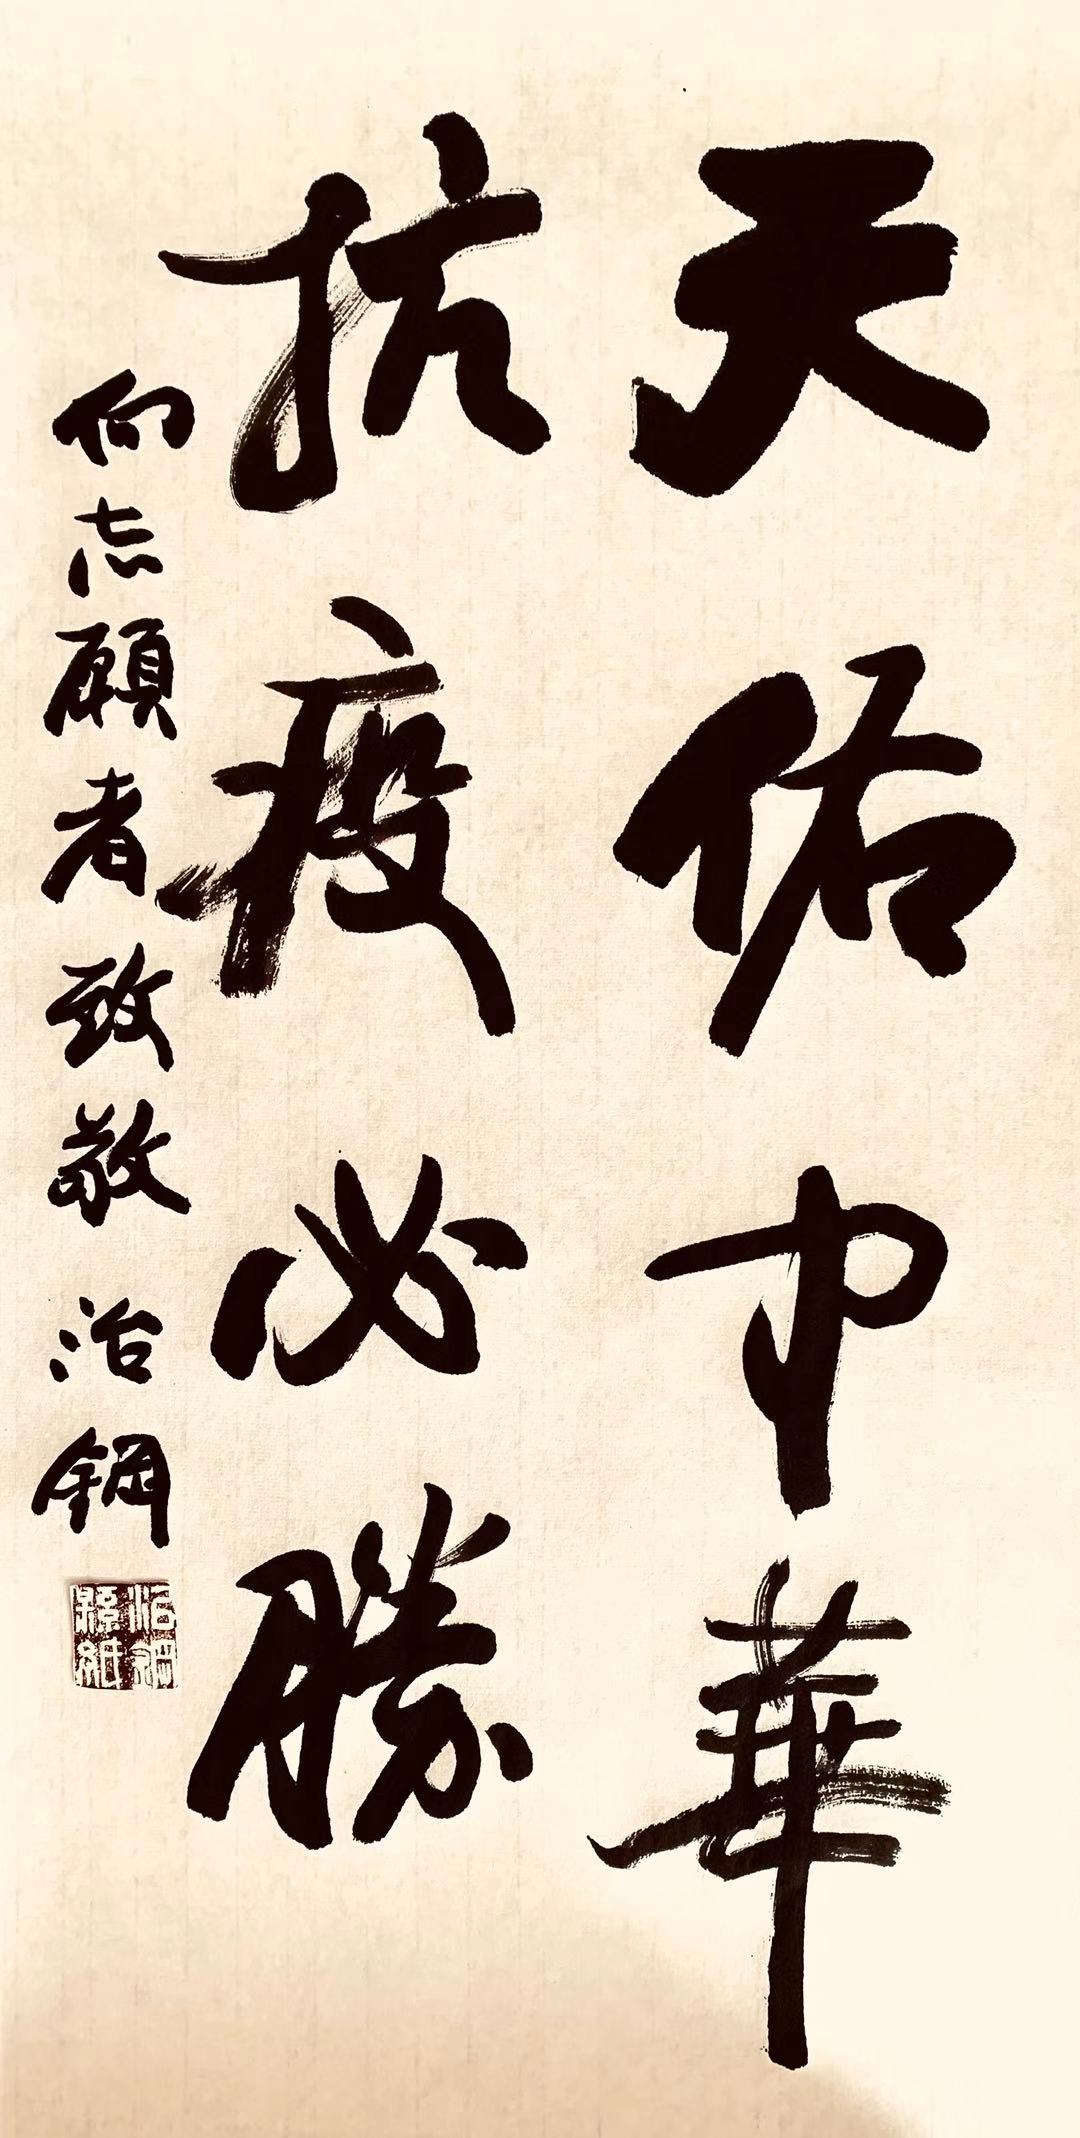 天佑中華
抗疫必勝
向志願者致敬 治鋼